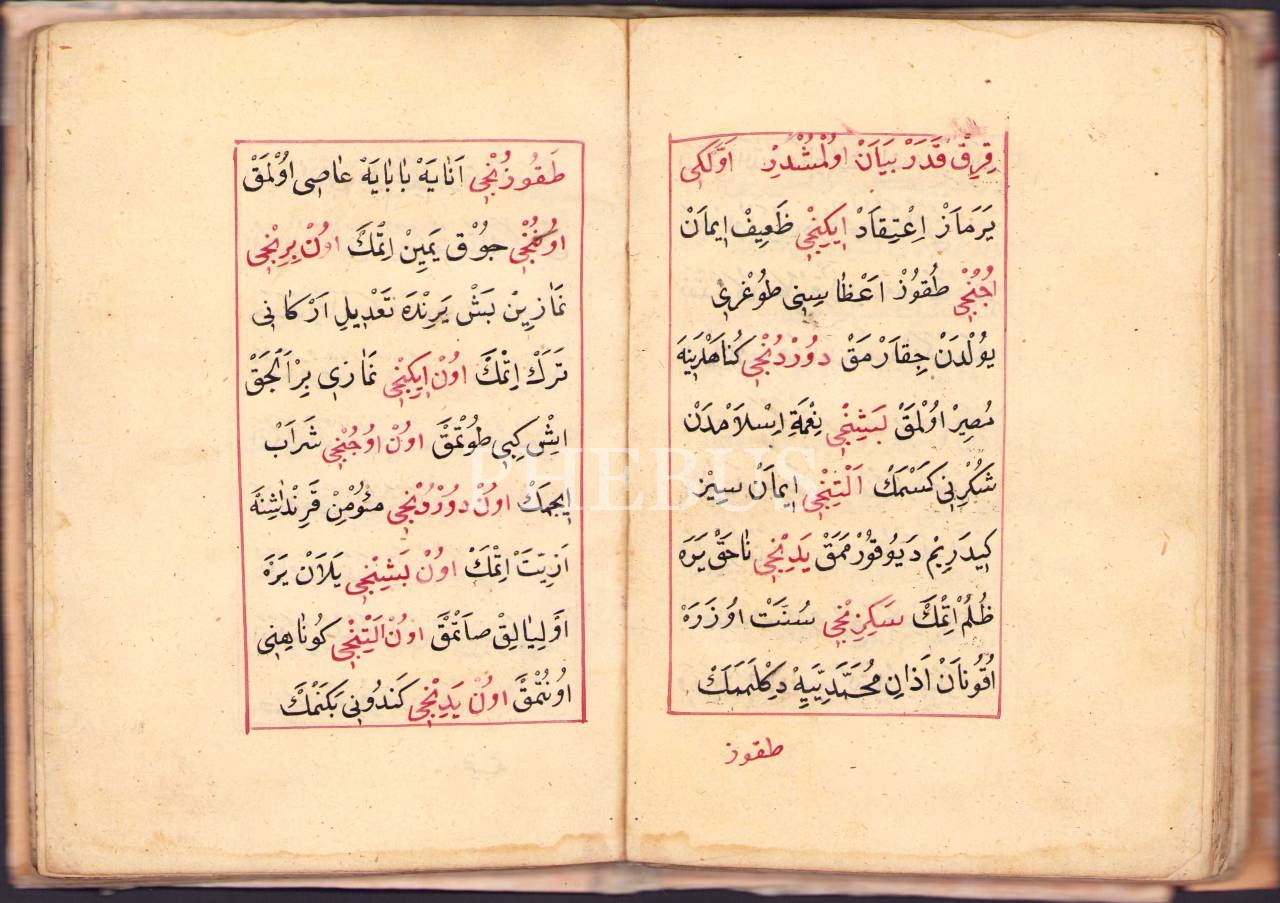 قِرِقْ قَدَرْ بَيَانْ اوُلْمُشْدِرْ اَوَّلْكِى
يَرَمَازْ اِعْتِقَادْ اِيكِنْجِى ظَعِيفْ اِيمَانْ
اُجُنْجِى طُقُوزْ اَعْظَاسِنِى طوُغْرِى
يُولْدَنْ جِقَارْمَقْ دوُرْدُنْجِى كُنَاهْلَرِينَهَ
مُصِرْ اوُلْمَقْ بَشِنْجِى نِعْمَةِ اِسْلَامْدَنْ
شُكْرِنِى كَسْمَكْ اَلْتِنْجِى اِيمَانْ سِيزْ
كِيدَرِيمْ دَيُو قُورْمَمَقْ يَدِنْجِى نَاحَقْ يَرَه
ظُلُمْ اِتْمَكْ سَكِزِنْجِى سُنَّتْ اوُزَرَهْ
اُقُونَانْ اَذَانِ مُحَمَّدِيَّيِهْ دِكْلَمَمَكْ
طقوز
طَقُوزُنْجِى اَنَايَهْ بَابَايَهْ عَاصِى اوُلْمَقْ
اوُنُنْجِى جوُقْ يَمِينْ اِتْمَكْ اوُنْ بِرِنْجِى
نَمَازِينْ بَشْ يَرِنْدَهَ تَعْدِيلِ اَرْكَانِى
تَرَكْ اِتْمَكْ اوُنْ اِيكِنْجِى نَمَازِى بِرْ اَلْجَقْ
اِيشْ كِبِى طوُتْمَقْ اوُنْ اوُجُنْجِى شَرَابْ
اِيجْمَكْ اوُنْ دوُرْدُنْجِى مئوُمْنْ قَرِنْدَاشِنَهَ
اَزِيَّتْ اِتْمَكْ اوُنْ بَشِنْجِى يَلَانْ يَرَهْ
اَوْلِيَالِقْ صَاتْمَقْ اوُنْ اَلْتِنْجِى كُونَاهِنِى
اوُنُتْمَقْ اوُنْ يَدِنْجِى كَنْدُونِى بَكَنْمَكْ
PHEBUS